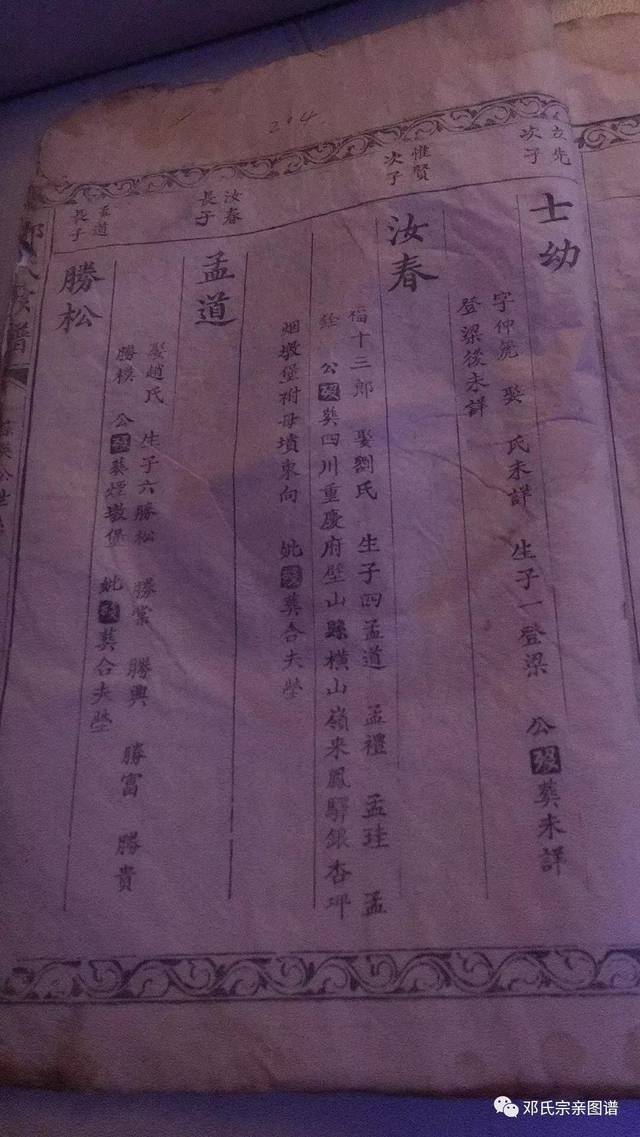 204
立先
次子
士幼
字仲堯 娶 氏未詳 生子一登梁 公歿葬未詳
登梁後未詳
惟賢
次子
汝春
福十三郎 娶劉氏 生子四孟道 孟禮 孟珪 孟
銓 公歿葬四川重慶府壁山縣橫山嶺來鳳驛銀杏坪
烟墩堡祔母墳東向 妣歿葬合夫塋
汝春
長子
孟道
娶趙氏 生子六勝松 勝棠 勝興 勝富 勝貴
勝模 公歿葬煙墩堡 妣歿葬合夫塋
孟道
長子
勝松
邓氏宗亲图谱